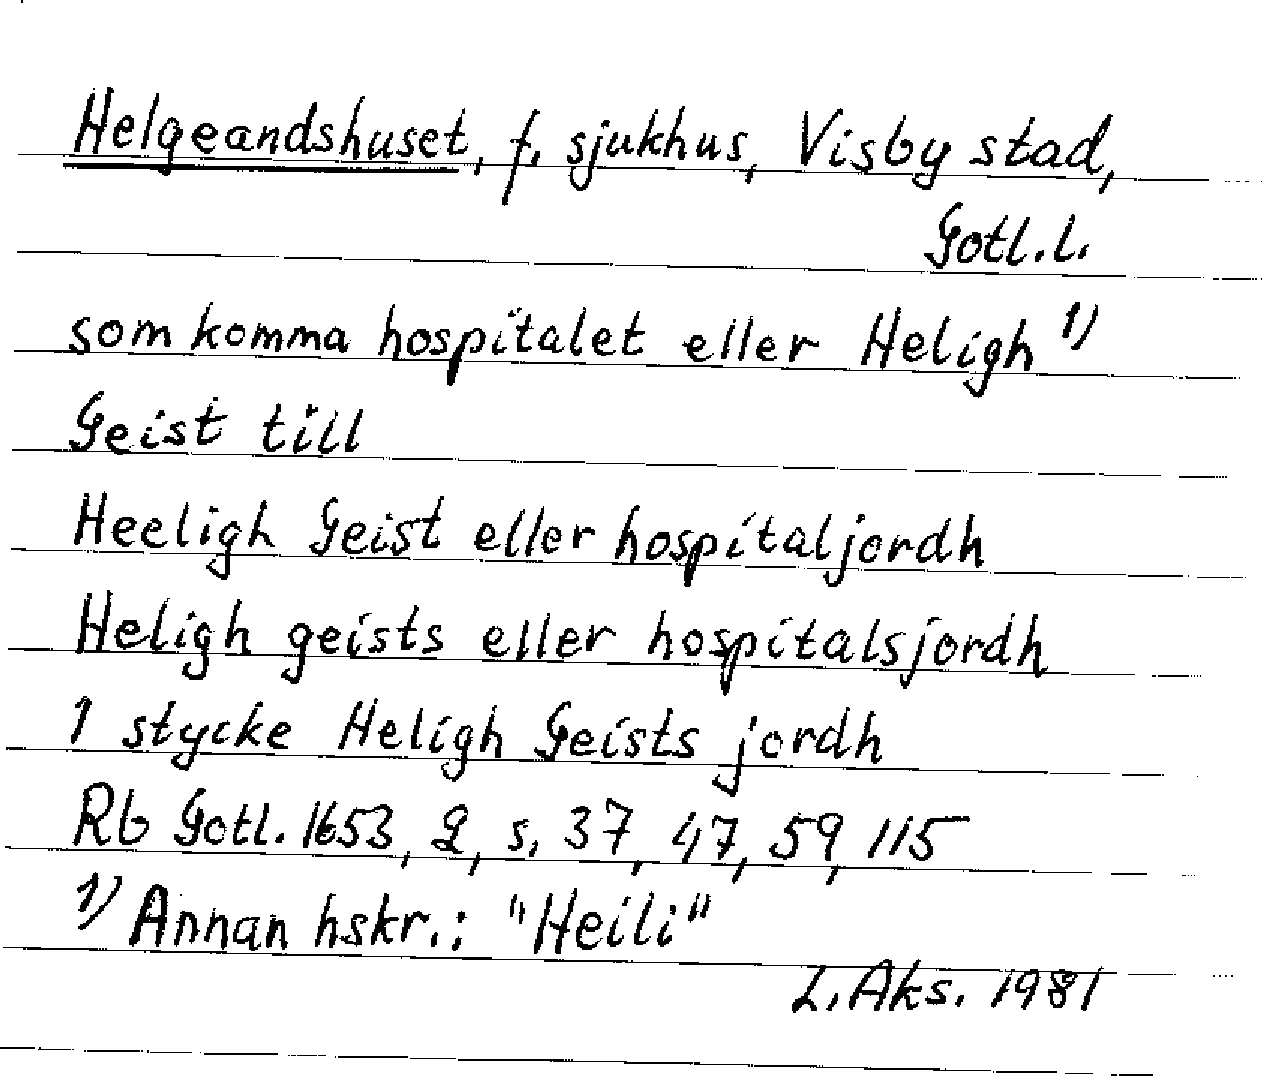 Helgeandshuset, f. sjukhus, Visby stad,
Gotl.l.
som komma hospitalet eller Heligh 1)
Geist till
Heeligh Geist eller hospitaljordh
Heligh geists eller hospitalsjordh
1 stycke Heligh Geists jordh
Rb Gotl. 1653, 2, s. 37, 47, 59, 115
1) Annan hskr.: "Heili"
L. Aks. 1981